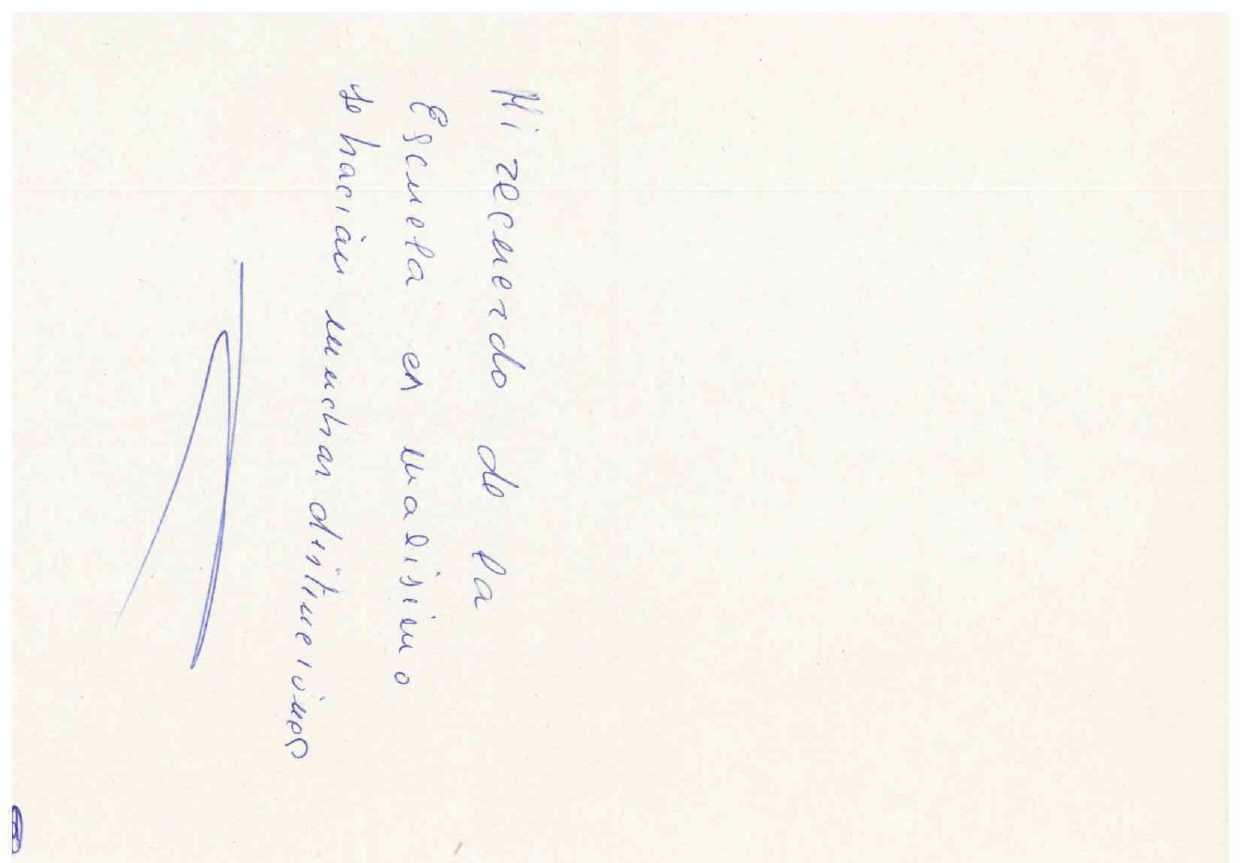 Mi recuerdo de la
Escuela es malisimo
se hacián muchas distinciónes